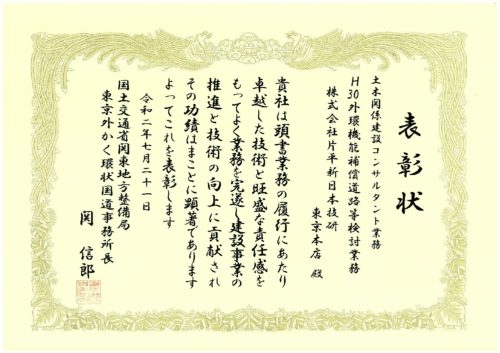 表彰状
土木関係建設コンサルタント業務
H30外環機能補償道路等検討業務
株式会社片平新日本技研
東京本店 殿
貴社は頭書業務の履行にあたり
卓越した技術と旺盛な責任感を
もってよく業務を完遂し建設事業の
推進と技術の向上に貢献され
その功績はまことに顕著であります
よってこれを表彰します
令和二年七月二十一日
国土交通省関東地方整備局
東京外かく環状国道事務所長
関 信郎